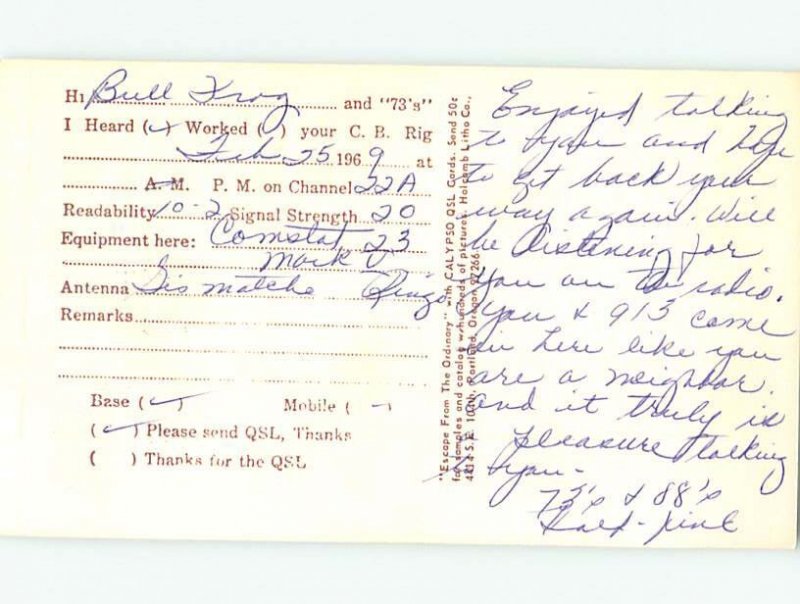 Hi Bull Frog and "73's"
I Heard (✓) Worked ( ) your C. B. Rig
Feb 25 1969 at
A.M. P. M. on Channel 22A
Readability 10-2 Signal Strength 20
Equipment here: Comstat 23
Mark V
Antenna Gis matche Ringo
Remarks
Base (✓) Mobile ( )
(✓) Please send QSL, Thanks
( ) Thanks for the QSL
"Escape From The Ordinary" with CALYPSO QSL Cards. Send 50c
for samples and catalog w/hundreds of pictures. Holcomb Litho Co.,
4414 S.E. 104th, Portland, Oregon 97266
Enjoyed talking
to you and hope
to get back your
way again. Will
be listening for
you on the radio.
You & 913 come
in here like you
are a neighbor.
And it truly is
pleasure talking
to you-
73's & 88's